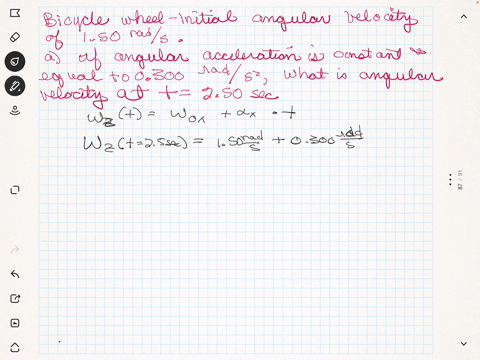 Bicycle wheel-initial angular velocity
of 1.50 rad/s.
a) if angular acceleration is constant &
equal to 0.300 rad/s², what is angular
velocity at t = 2.50 sec
ω_z(t) = ω_0x + α_x · t
ω_z(t=2.5sec) = 1.50 rad/s + 0.300 rad/s
87 / 91